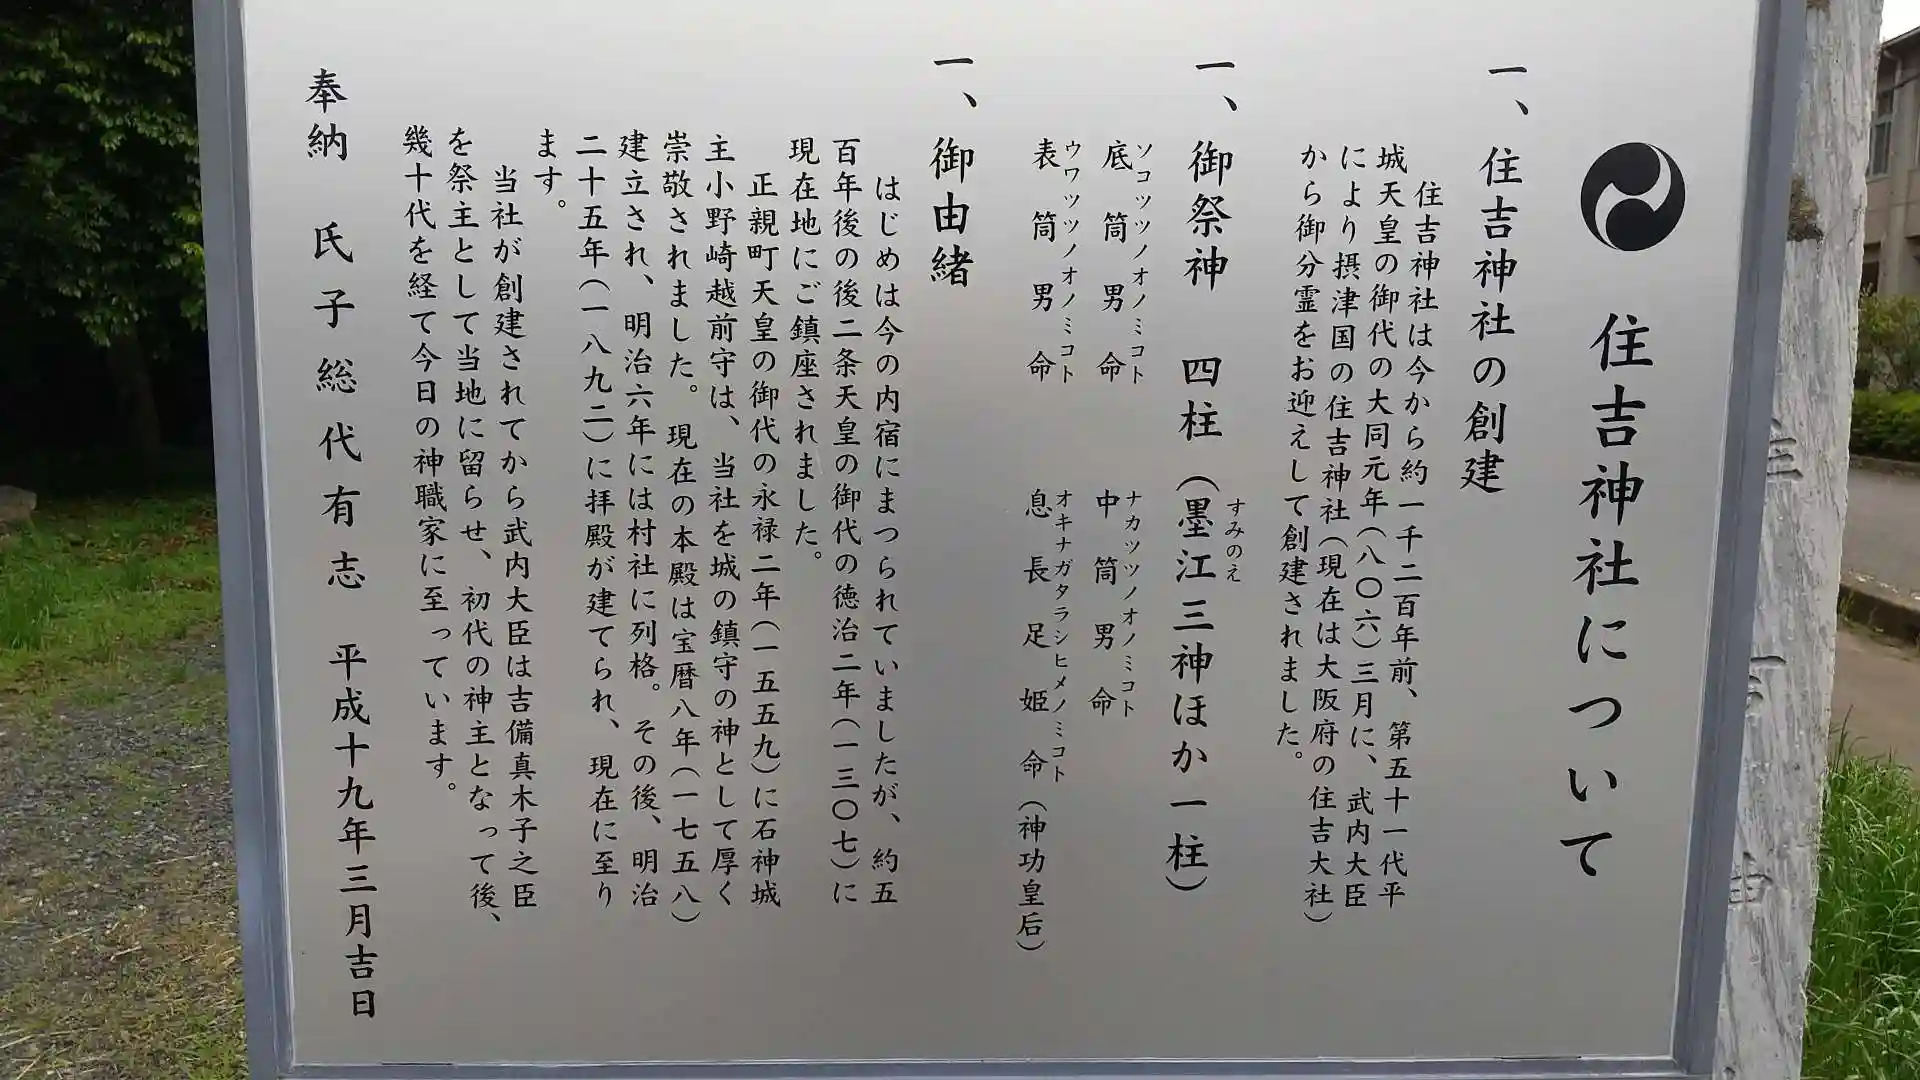 住吉神社について
一、住吉神社の創建
住吉神社は今から約一千二百年前、第五十一代平
城天皇の御代の大同元年（八〇六）三月に、武内大臣
により摂津国の住吉神社（現在は大阪府の住吉大社）
から御分霊をお迎えして創建されました。
一、御祭神 四柱（墨江三神ほか一柱）
すみのえ
ソコツツノオノミコト ナカツツノオノミコト
底筒男命 中筒男命
ウワツツノオノミコト オキナガタラシヒメノミコト
表筒男命 息長足姫命（神功皇后）
一、御由緒
はじめは今の内宿にまつられていましたが、約五
百年後の後二条天皇の御代の徳治二年（一三〇七）に
現在地にご鎮座されました。
正親町天皇の御代の永禄二年（一五五九）に石神城
主小野崎越前守は、当社を城の鎮守の神として厚く
崇敬されました。現在の本殿は宝暦八年（一七五八）
建立され、明治六年には村社に列格。その後、明治
二十五年（一八九二）に拝殿が建てられ、現在に至り
ます。
当社が創建されてから武内大臣は吉備真木子之臣
を祭主として当地に留らせ、初代の神主となって後、
幾十代を経て今日の神職家に至っています。
奉納 氏子総代有志 平成十九年三月吉日